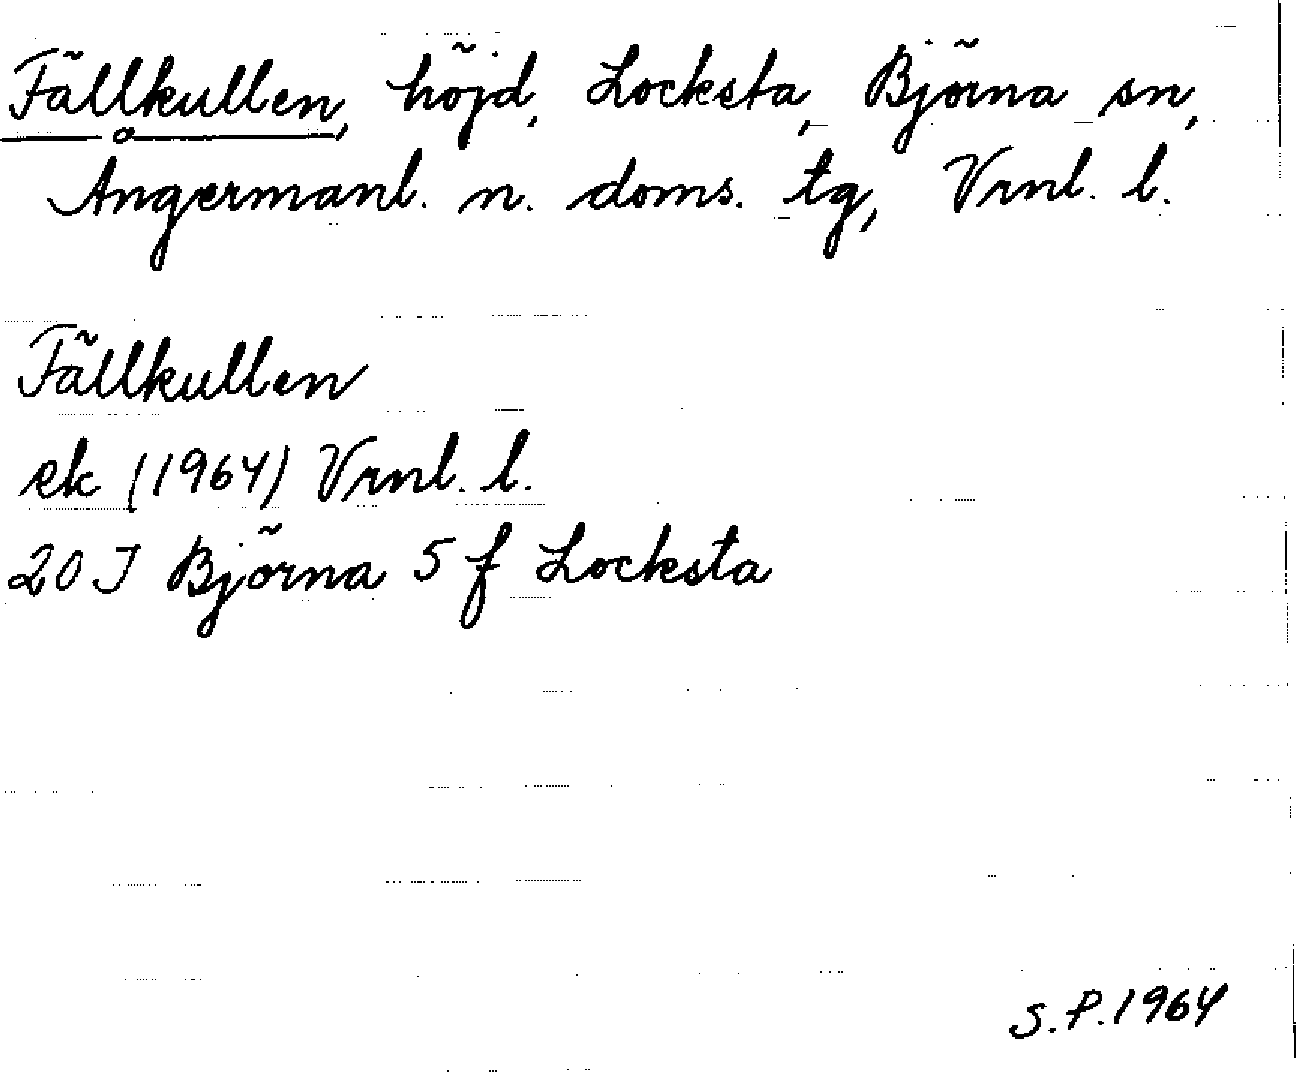 Fällkullen, höjd, Locksta, Björna sn,
Ångermanl. n. doms. tg, Vrnl. l.
Fällkullen
ek (1964) Vrnl. l.
20 J Björna 5 f Locksta
S.P. 1964